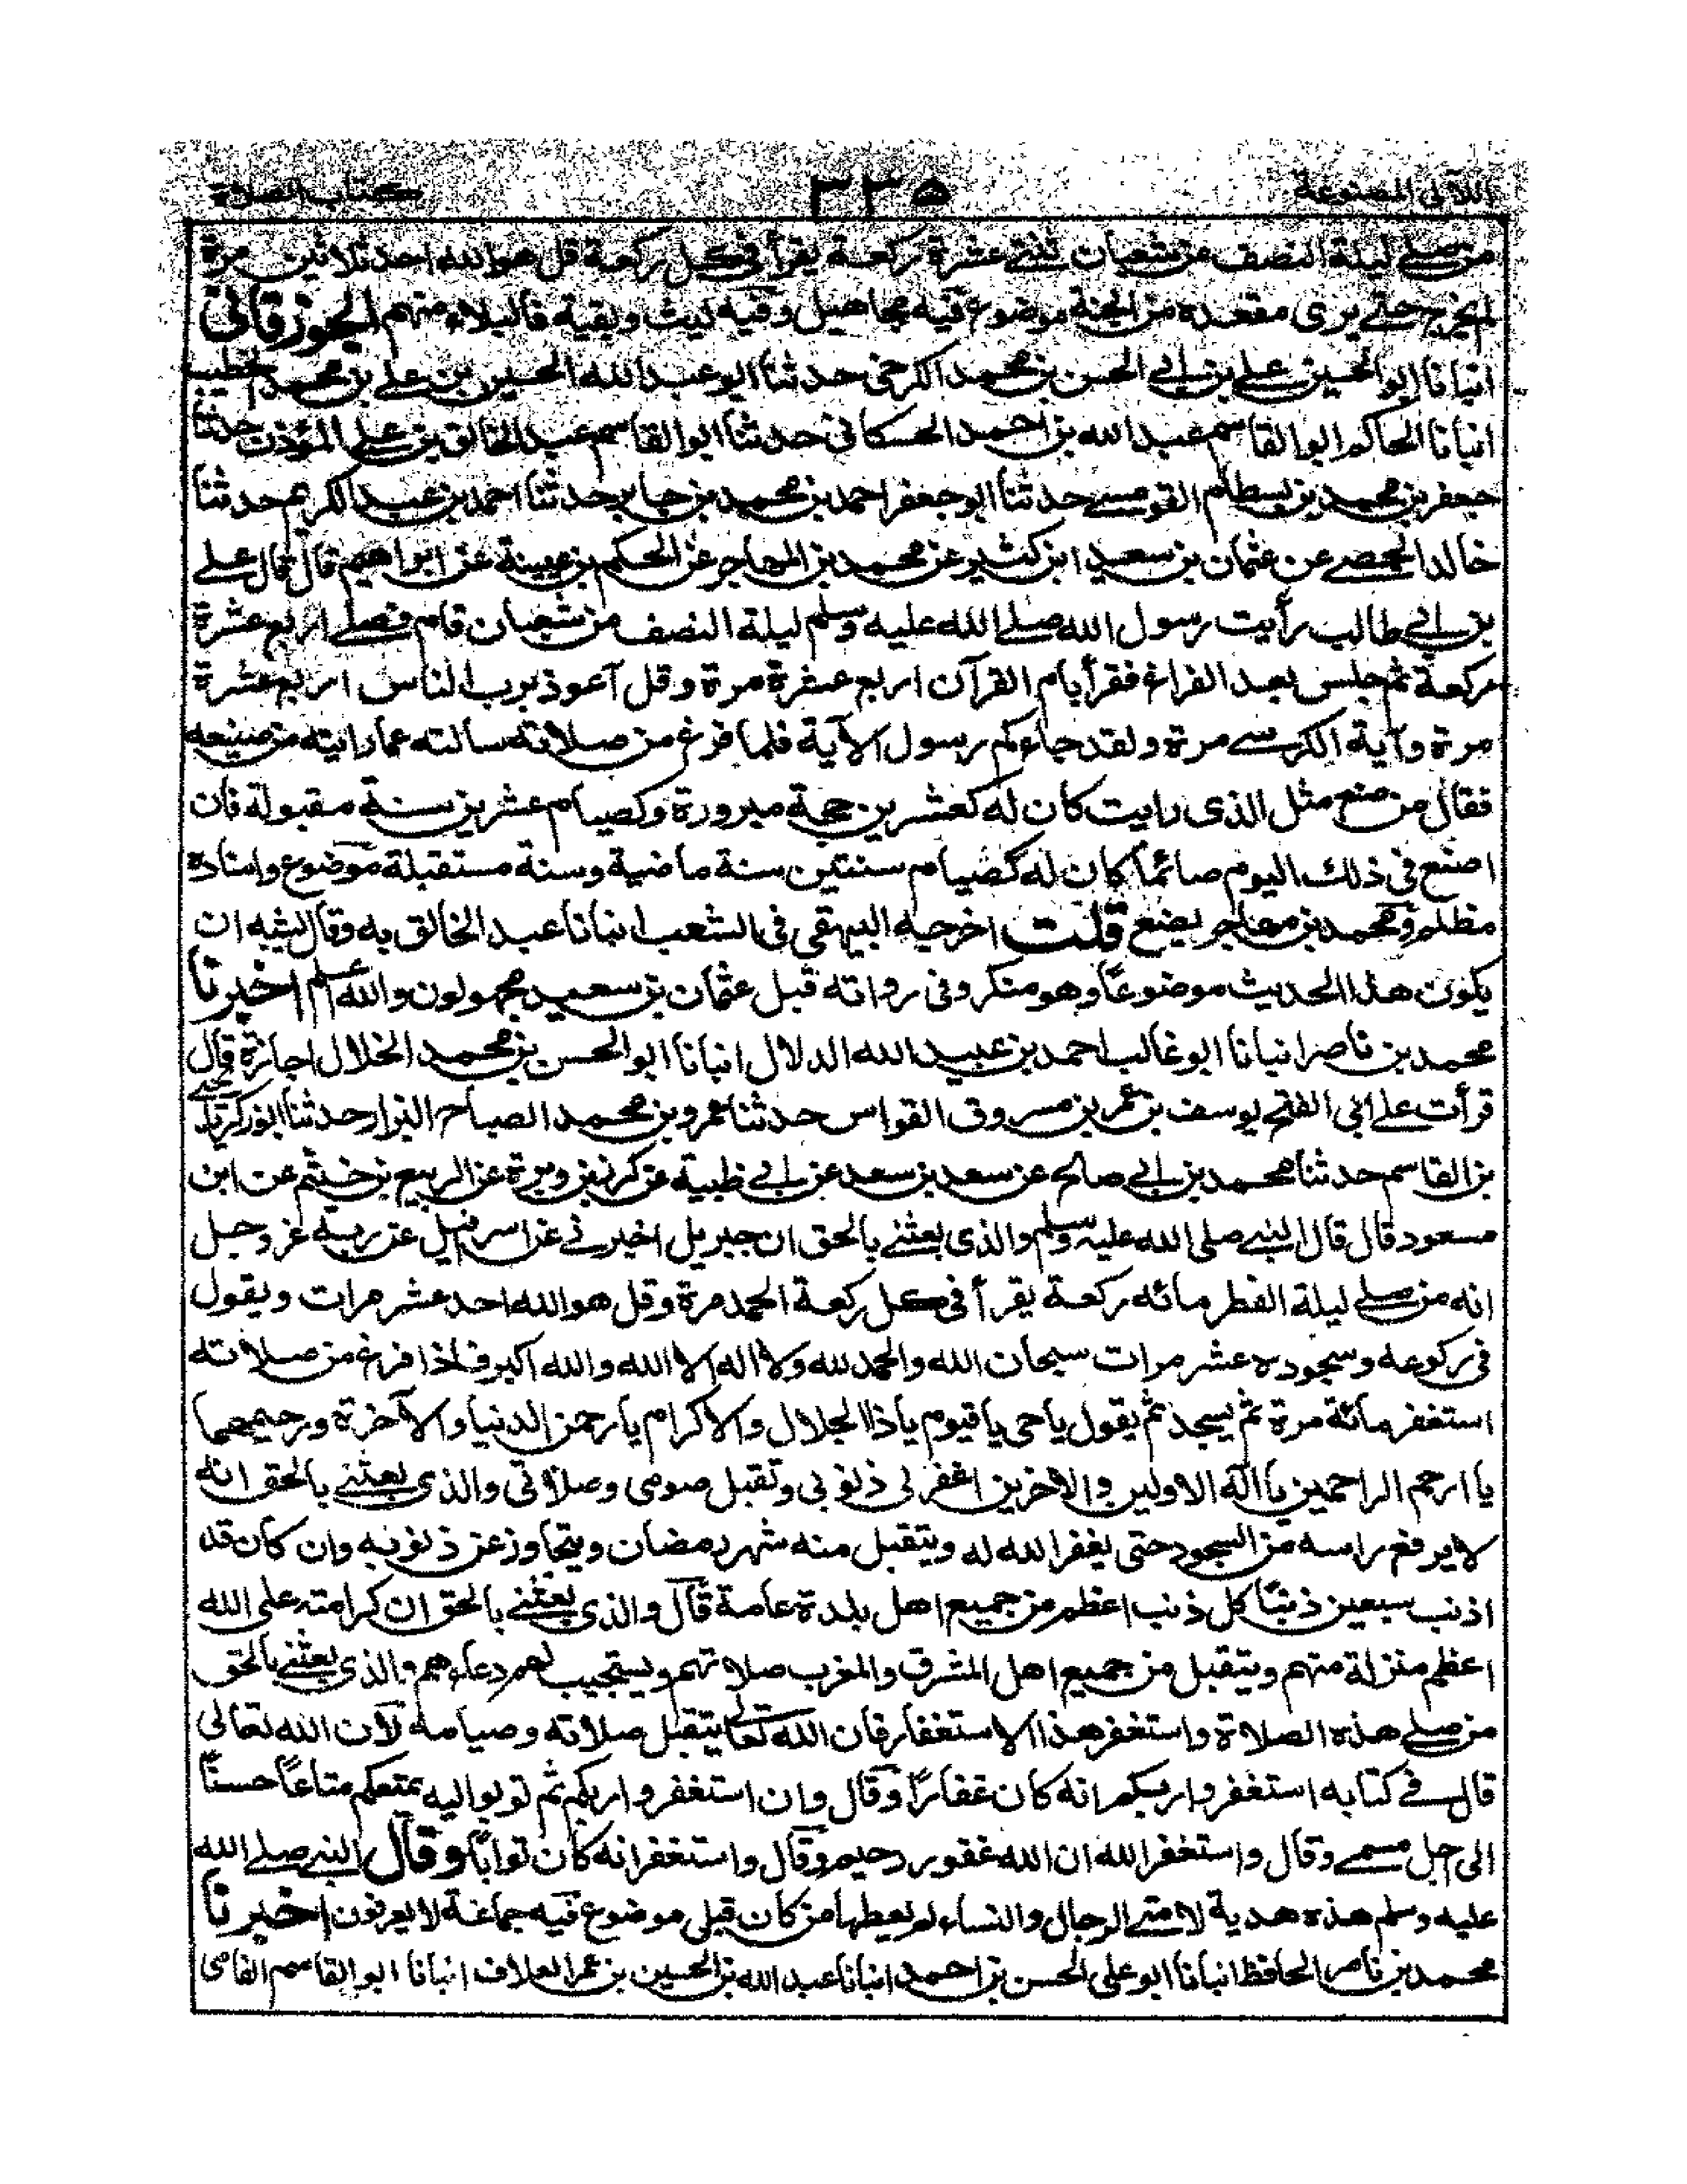 اللآلى المصنوعة ٣٣٥ كتاب الصلاة
من صلى ليلة النصف من شعبان ثنتى عشرة ركعة يقرأ فى كل ركعة قل هو الله احد ثلاثين مرة
لم يخرج حتى يرى مقعده من الجنة موضوع فيه مجاهيل وفيه ليث وبقية فالبلاء منهم الجوزقانى
انبانا ابو الحسين على بن ابى الحسن بن محمد الكرخى حدثنا ابو عبد الله الحسين بن على بن محمد الخطيب
انبانا الحاكم ابو القاسم عبد الله بن احمد الحسكانى حدثنا ابو القاسم عبد الخالق بن على المؤذن حدثنا
جعفر بن محمد بن بسطام القومسى حدثنا ابو جعفر احمد بن محمد بن جابر حدثنا احمد بن عبد الكريم حدثنا
خالد الحمصى عن عثمان بن سعيد ابن كثير عن محمد بن المهاجر عن الحكم بن عيينة عن ابراهيم قال قال على
بن ابى طالب رأيت رسول الله صلى الله عليه وسلم ليلة النصف من شعبان قام فصلى اربع عشرة
ركعة ثم جلس بعد الفراغ فقرأ بام القرآن اربع عشرة مرة وقل آعوذ برب الناس اربع عشرة
مرة وآية الكرسى مرة ولقد جاءكم رسول الآية فلما فرغ من صلاته سالته عما رايته من صنيعه
فقال من صنع مثل الذى رايت كان له كعشرين حجة مبرورة وكصيام عشرين سنة مقبولة فان
اصنع فى ذلك اليوم صائماً كان له كصيام سنتين سنة ماضية وسنة مستقبلة موضوع واسناده
مظلم ومحمد بن مهاجر يضع قلت اخرجه البيهقى فى الشعب انبانا عبد الخالق به وقال يشبه ان
يكون هذا الحديث موضوعاً وهو منكر وفى رواته قبل عثمان بن سعيد مجهولون والله اعلم اخبرنا
محمد بن ناصر انبانا ابو غالب احمد بن عبيد الله الدلال انبانا ابو الحسن بن محمد الخلال اجازة قال
قرأت على ابى الفتح يوسف بن عمر بن مسروق القواس حدثنا عمرو بن محمد الصباح البزار حدثنا ابو زكريا يحيى
بن القاسم حدثنا محمد بن ابى صالح عن سعد بن سعد عن ابى ظبية عن كرز بن وبرة عن الربيع بن خيثم عن ابن
مسعود قال قال النبى صلى الله عليه وسلم والذى بعثنى بالحق ان جبريل اخبرنى عن اسرافيل عن ربه عز وجل
انه من صلى ليلة الفطر مائه ركعة يقرأ فى كل ركعة الحمد مرة وقل هو الله احد عشر مرات ويقول
فى ركوعه وسجوده عشر مرات سبحان الله والحمد لله ولا اله الا الله والله اكبر فاذا فرغ من صلاته
استغفر مائة مرة ثم يسجد ثم يقول ياحى ياقيوم ياذا الجلال والاكرام يا رحمن الدنيا والآخرة ورحيمهما
يا ارحم الراحمين يا آله الاولين والاخرين اغفر لى ذنوبى وتقبل صومى وصلاتى والذى بعثنى بالحق انه
لا يرفع راسه من السجود حتى يغفر الله له ويتقبل منه شهر رمضان ويتجاوز عن ذنوبه وان كان قد
اذنب سبعين ذنبًا كل ذنب اعظم من جميع اهل بلدة عامة قال والذى بعثنى بالحق ان كرامته على الله
اعظم منزلة منهم ويتقبل من جميع اهل المشرق والمغرب صلاتهم ويستجيب لهم دعاءهم والذى بعثنى بالحق
من صلى هذه الصلاة واستغفر هذا الاستغفار فان الله تعالى يتقبل صلاته وصيامه لان الله تعالى
قال فى كتابه استغفروا ربكم انه كان غفاراً وقال وان استغفروا ربكم ثم توبوا اليه يمتعكم متاعاً حسناً
الى اجل مسمى وقال واستغفر الله ان الله غفور رحيم وقال واستغفر انه كان تواباً وقال النبى صلى الله
عليه وسلم هذه هدية لامتى الرجال والنساء لم يعطها من كان قبلى موضوع فيه جماعة لا يعرفون اخبرنا
محمد بن ناصر الحافظ انبانا ابو على الحسن بن احمد انبانا عبد الله بن الحسين بن عمر العلاف انبانا ابو القاسم القاضى